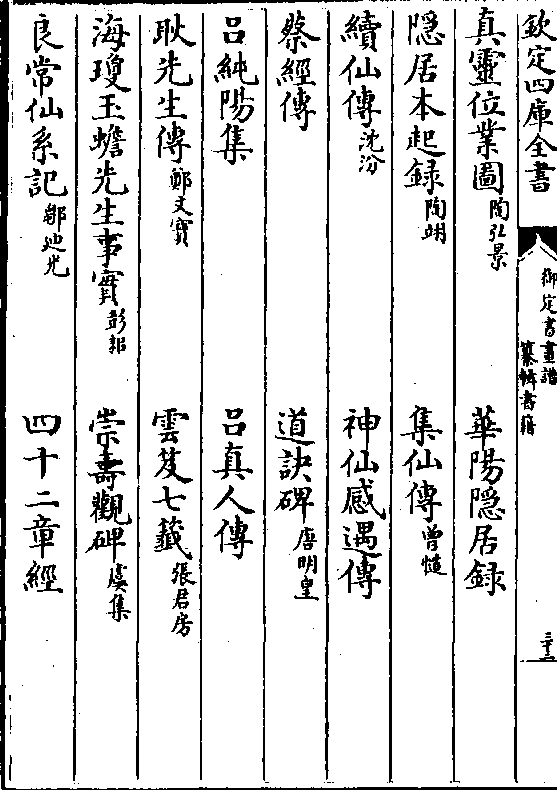 欽定四庫全書
御定書畫譜
纂輯書籍
三十二
真靈位業圖 陶弘景 華陽隠居録
隠居本起録 陶翊 集仙傳 曾慥
續仙傳 沈汾 神仙感遇傳
蔡經傳 道訣碑 唐明皇
吕純陽集 吕真人傳
耿先生傳 鄭文寳 雲笈七籖 張君房
海瓊玉蟾先生事實 彭耜 崇壽觀碑 虞集
良常仙系記 鄒迪光 四十二章經